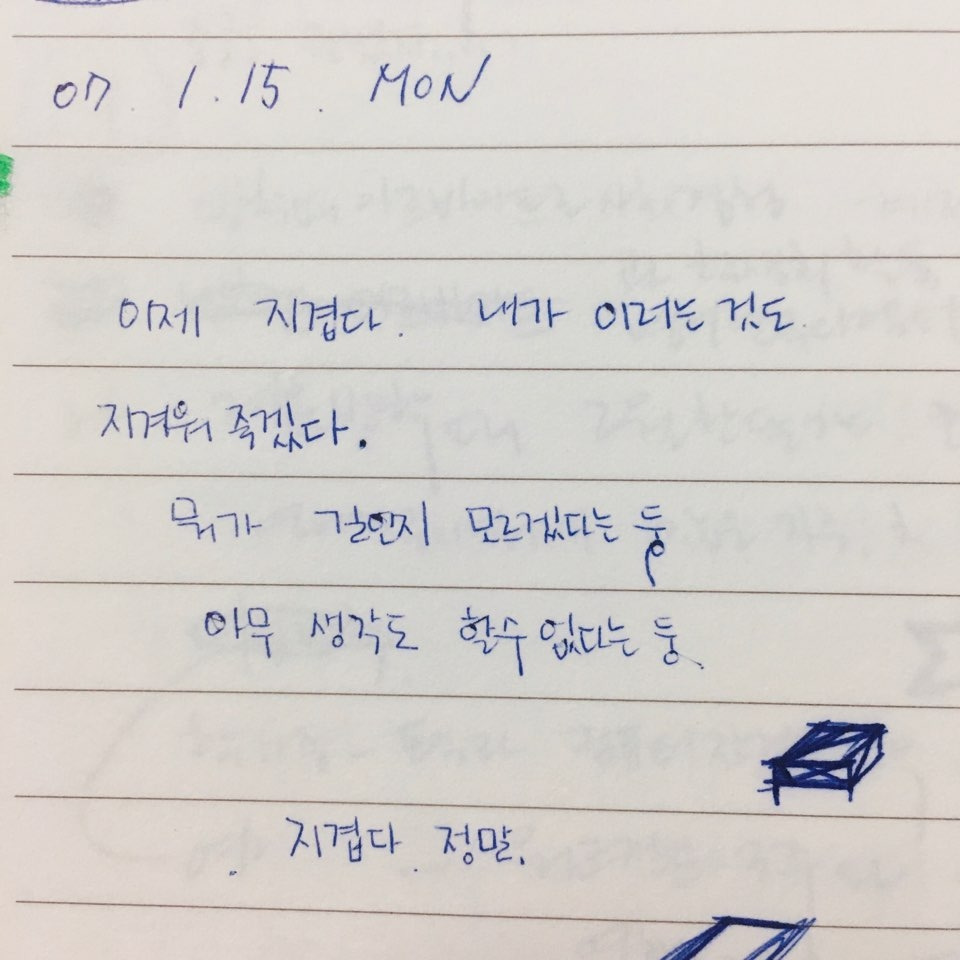 07. 1. 15. MON
이제 지겹다. 내가 이러는 것도.
지겨워 죽겠다.
뭐가 진지 모르겠다는 둥
아무 생각도 할수 없다는 둥.
지겹다. 정말.